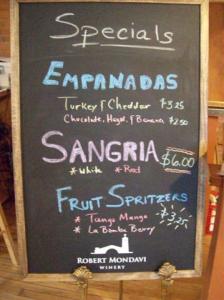 Specials
EMPANADAS
Turkey & Cheddar $3.25
Chocolate, Hazel. & Banana $2.50
SANGRIA
* White * Red $6.00
FRUIT SPRITZERS
* Tango Mango $3.25
* La Bomba Berry
ROBERT MONDAVI
WINERY